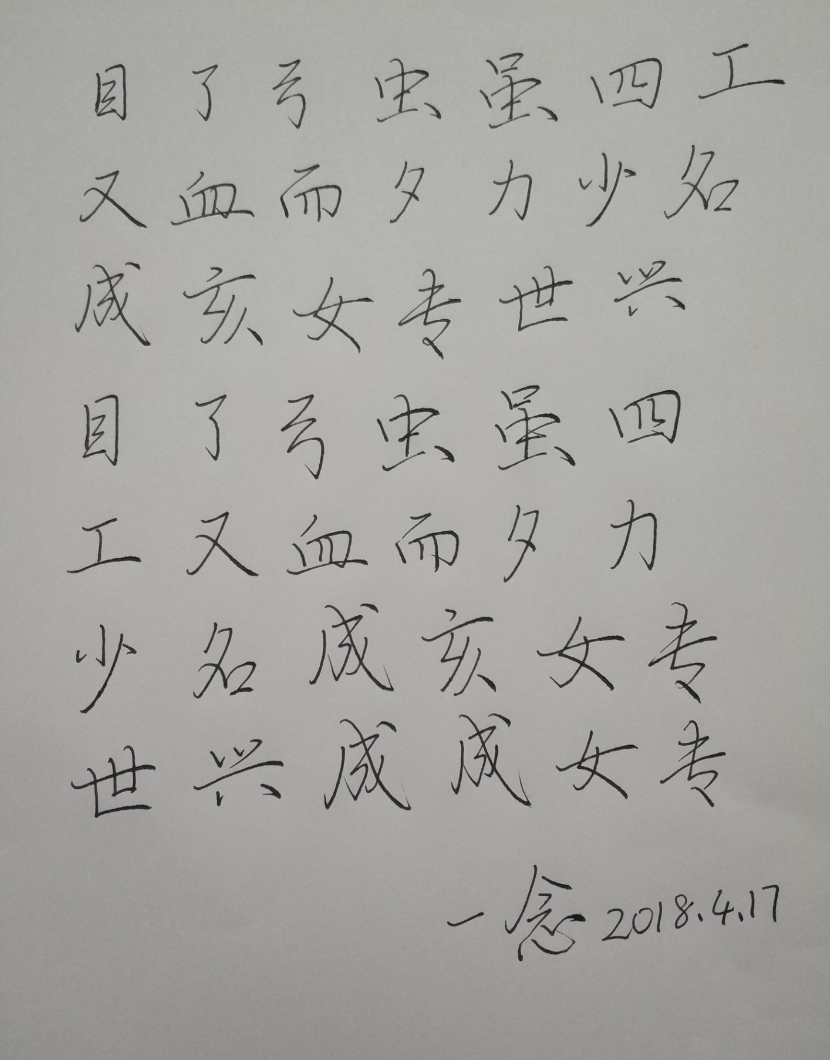 目了弓虫虽四工
又血而夕力少名
成亥女专世兴
目了弓虫虽四
工又血而夕力
少名成亥女专
世兴成成女专
一念2018.4.17